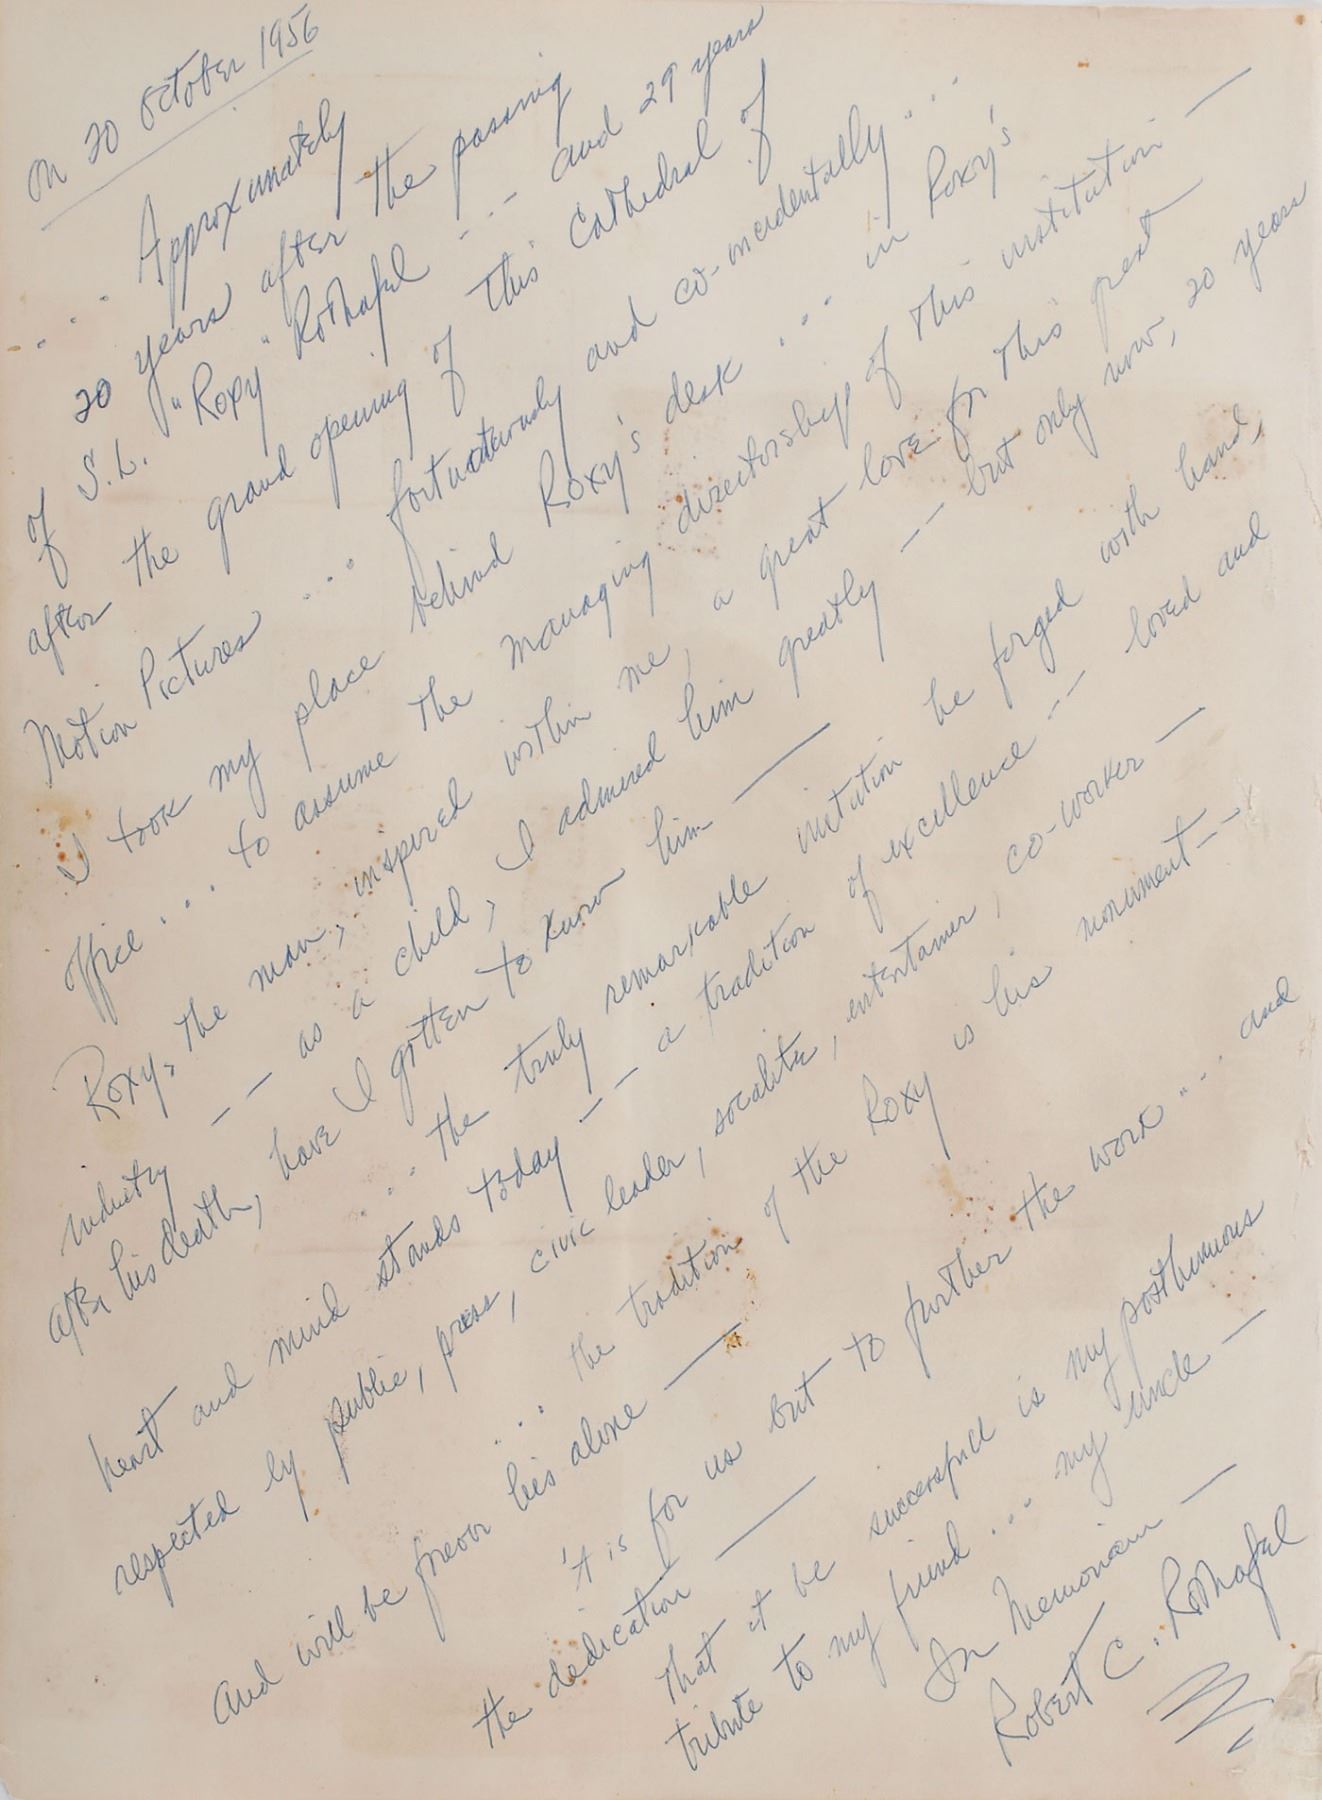 On 20 October 1956
... Approximately
20 years after the passing
of S.L. "Roxy" Rothafel -- and 29 years
after the grand opening of this Cathedral of
Motion Pictures ... fortuitously and co-incidentally ...
I took my place behind Roxy's desk ... in Roxy's
office ... to assume the managing directorship of this institution —
Roxy, the man, inspired within me, a great love for this great
industry -- as a child, I admired him greatly -- but only now, 20 years
after his death, have I gotten to know him —
... the truly remarkable he forged with hand,
heart and mind stands today -- a tradition of excellence -- loved and
respected by public, press, civic leader, socalite, entertainer, co-worker —
... the tradition of the Roxy is his monument --
and will be his alone —
't is for us but to further the work ... and
the dedication —
that it be successful is my posthumous
tribute to my friend ... my uncle —
In Memoriam —
Robert C. Rothafel